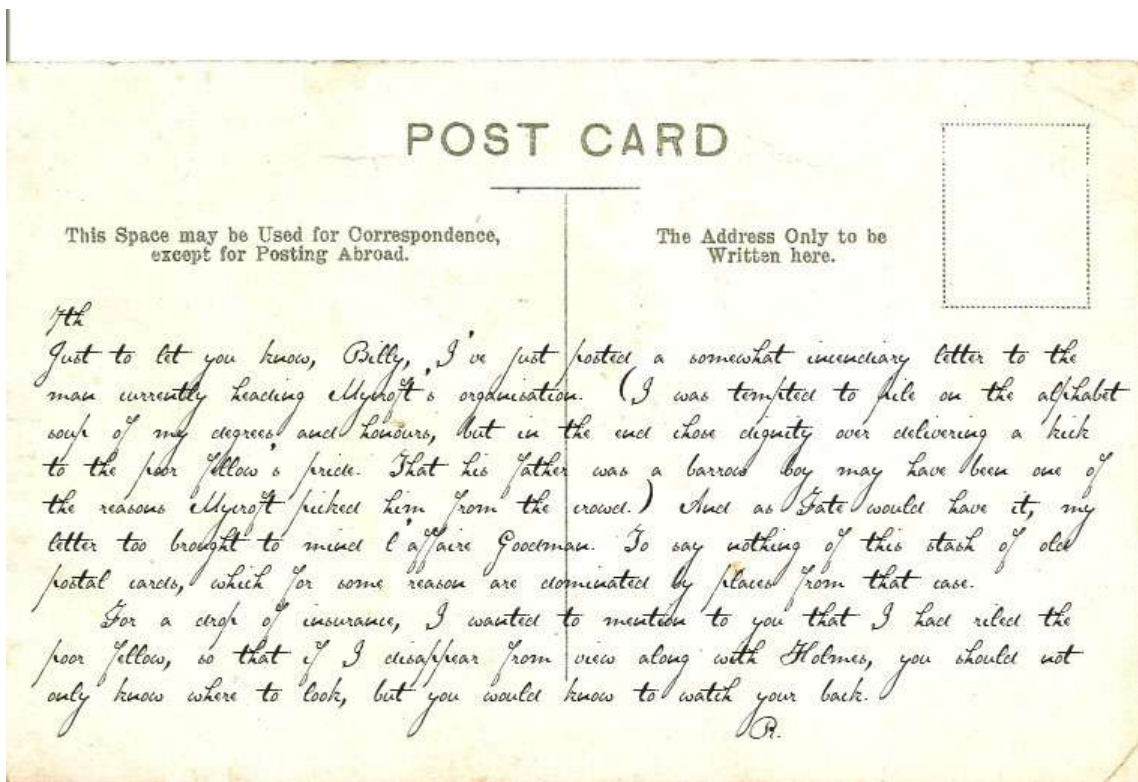 POST CARD
This Space may be Used for Correspondence,
except for Posting Abroad.
The Address Only to be
Written here.
7th
Just to let you know, Billy, I've just posted a somewhat incendiary letter to the
man currently heading Mycroft's organisation. (I was tempted to pile on the alphabet
soup of my degrees and honours, but in the end chose dignity over delivering a kick
to the poor fellow's pride. That his father was a barrow boy may have been one of
the reasons Mycroft picked him from the crowd.) And as Fate would have it, my
letter too brought to mind l'affaire Goodman. To say nothing of this stash of old
postal cards, which for some reason are dominated by places from that case.
For a drop of insurance, I wanted to mention to you that I had riled the
poor fellow, so that if I disappear from view along with Holmes, you should not
only know where to look, but you would know to watch your back.
R.